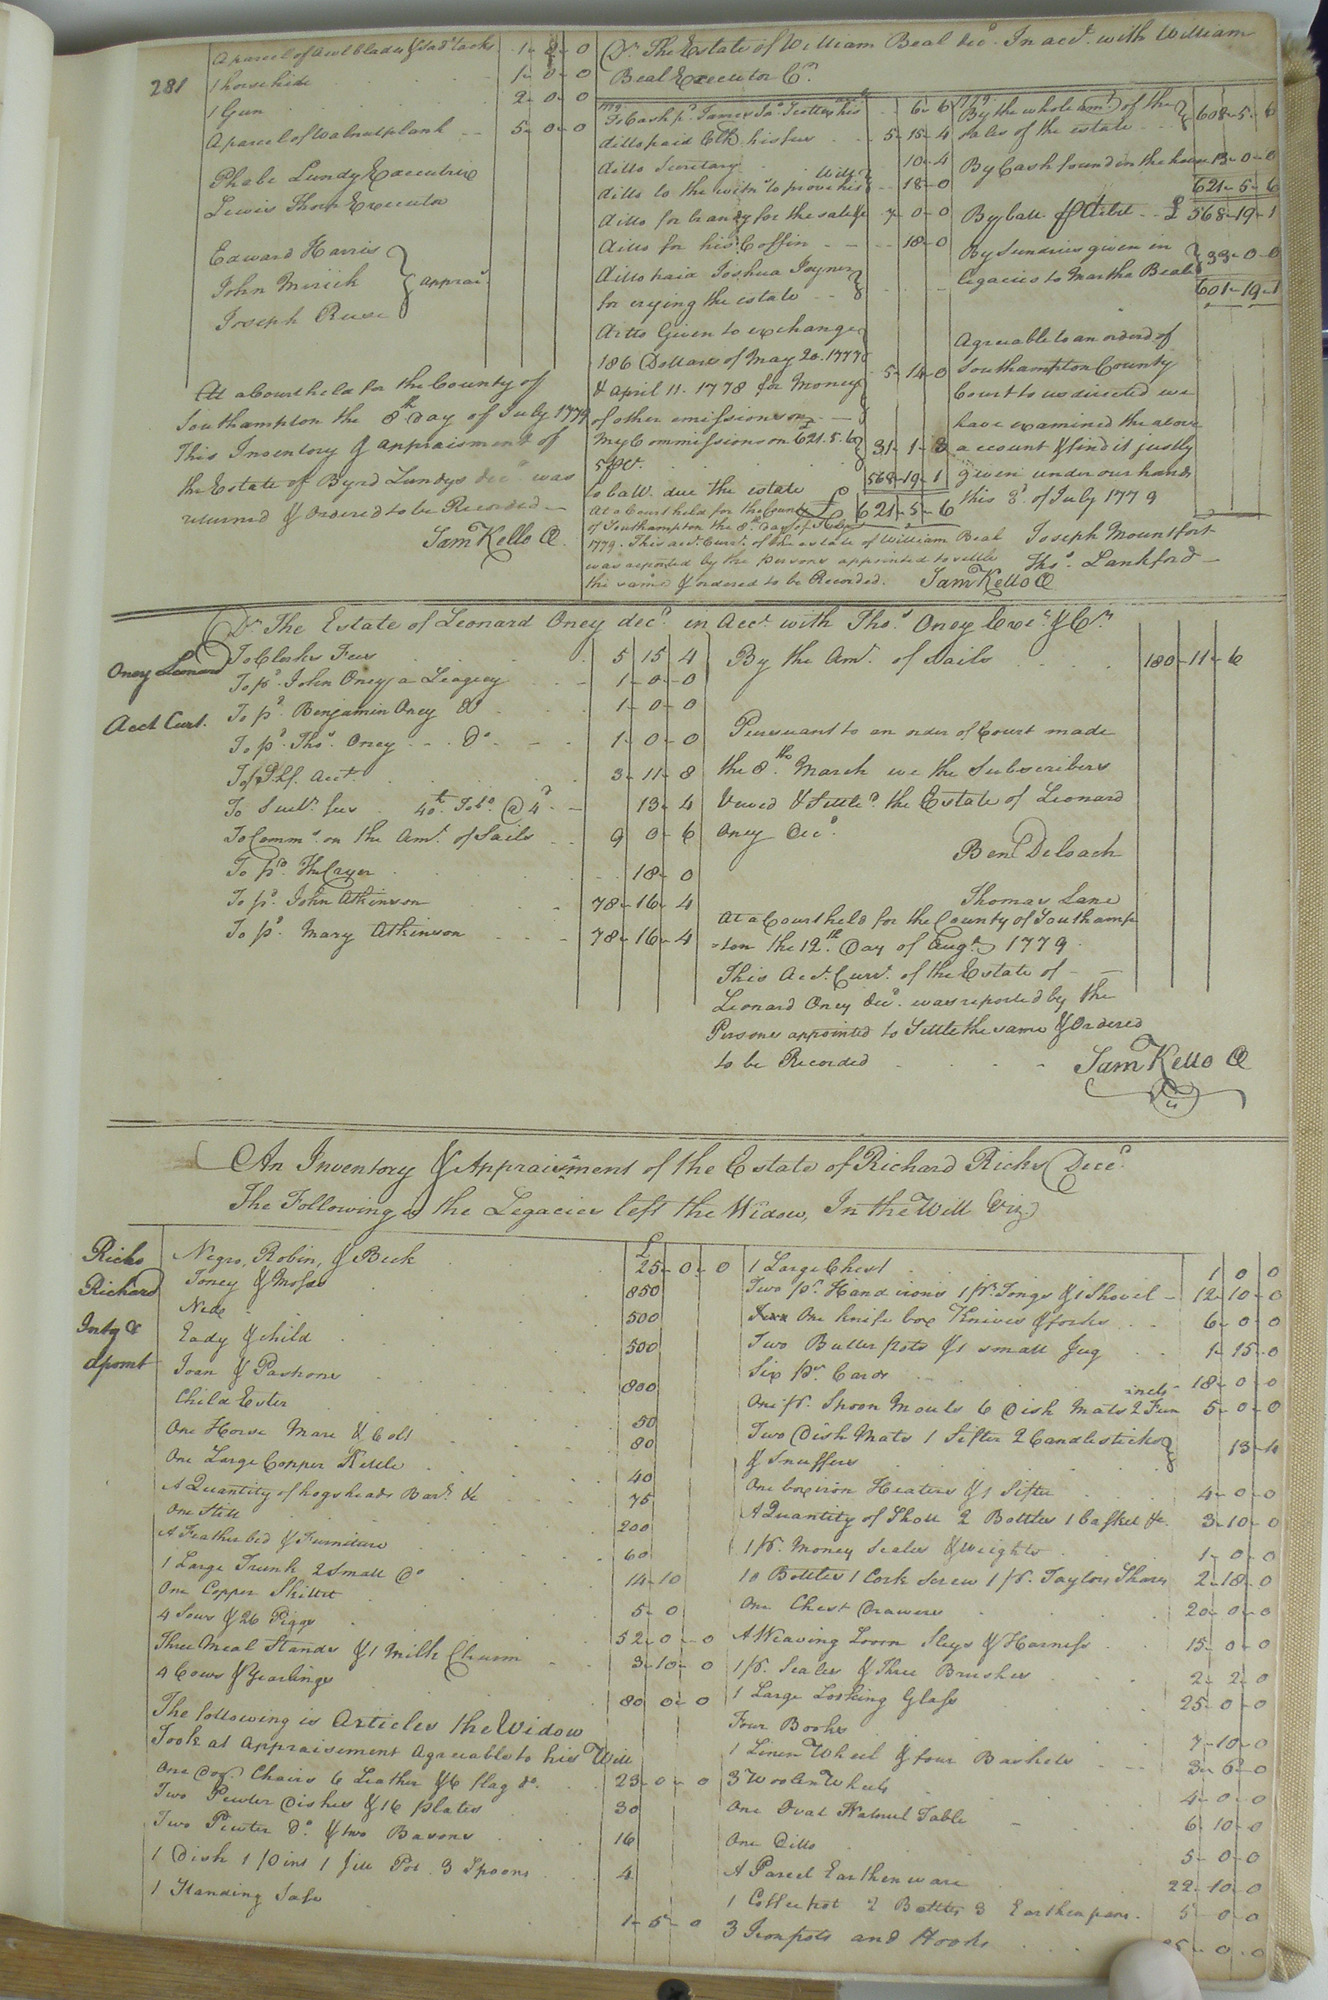 281
A parcel of awl blades & sad tacks 1-8-0
1 horse hide 1-0-0
1 Gun 2-0-0
A parcel of Walnut plank 5-0-0
Phebe Lundy Executrix
Lewis Thorp Executor
Edward Harris
John Mirick
Joseph Ruse
apprais.
At a Court held for the County of
Southampton the 8th Day of July 1779
This Inventory & appraisment of
the Estate of Byrd Lundys decd was
returned & Ordered to be Recorded
Saml Kello Cl
Dr. The Estate of William Beal decd. In acct. with William
Beal Executor Cr.
To Cash pd. James Jas. his 6-6
ditto paid Clk his fees 5-15-4
ditto Secretary 10-4
ditto to the witns. to prove his Will 18-0
ditto for brandy for the sale 7-0-0
ditto for his Coffin 18-0
ditto paid Joshua Joyner
for crying the estate
ditto Given to exchange
186 Dollars of May 20. 1777
& April 11. 1778 for Money
of other emissions 5-14-0
My Commissions on £621.5.6
5 pCt. 31-1-8
to ball. due the estate 568-19-1
£ 621-5-6
By the whole amt. of the
sales of the estate 608-5-6
By Cash found in the house 13-0-0
621-5-6
By ball. of debt £ 568-19-1
By Sundries given in
legacies to Martha Beal 33-0-0
601-19-1
Agreeable to an order of
Southampton County
Court to us directed we
have examined the above
account & find it justly
given under our hands
this 8th. of July 1779
Joseph Mountfort
Thos. Lankford
At a Court held for the County
of Southampton the 8th. Day of July
1779. This acct. Currt. of the estate of William Beal
was reported by the persons appointed to settle
the same & ordered to be Recorded. Saml Kello Cl
Dr. The Estate of Leonard Oney decd. in Acct. with Thos. Oney Exer. & Cr.
Oney Leonard
Acct Curt.
To Clerks Fees 5 15 4
To pd. John Oney a Leagecy 1-0-0
To pd. Benjamin Oney Do 1-0-0
To pd. Thos. Oney Do. 1-0-0
Acct 3-11-8
To fees 40 Tobo. @ 4d 13-4
To Comms. on the Amt. of Sails 9 0-6
To pd. The Cryer 18-0
To pd. John Atkinson 78-16-4
To pd. Mary Atkinson 78-16-4
By the Amt. of Sails 180-11-6
Pursuant to an order of Court made
the 8th. March we the Subscribers
Vewed & Settled. the Estate of Leonard
Oney Decd.
Benj Deloach
Thomas Lane
At a Court held for the County of Southamp
-ton the 12th. Day of Augt. 1779
This Acct. Curt. of the Estate of
Leonard Oney decd. was reported by the
Persons appointed to Settle the same & Ordered
to be Recorded
Saml Kello Cl
An Inventory & Appraisment of the Estate of Richard Ricks Decd.
The Following is the Legacies left the Widow, In the Will Viz
Ricks
Richard
Invty &
Apomt
£
Negro, Robin, & Beck 25-0-0
Toney & Moses 850
Ned 500
Eady & child 500
Joan & 800
Child Ester 50
One Horse Mare & Colt 80
One Large Copper Kettle 40
A Quantity of hogsheads Barls. &c 75
One Still 200
A Feather bed & Furniture 60
1 Large Trunk 2 Small Do 14-10
One Copper Skillet 5-0
4 Sows & 26 Piggs 52-0-0
Three Meal Stands & 1 Milk Churn 3-10-0
4 Cows & Yearlings 80 0-0
The following is Articles the Widow
Took at Appraisement Agreeable to his Will
One Doz Chairs 6 Leather & 6 flag do. 23-0-0
Two Pewter Dishes & 16 plates 30
Two Pewter Do. & two Basons 16
1 Dish 1 pint 1 Jill Pot 3 Spoons 4
1 Standing Safe 1-5-0
1 Large Chest 1 0 0
Two pr. Hand irons 1 pr. Tongs & 1 Shovel 12-10-0
One knife box Knives & forks 6-0-0
Two Butter pots & 1 small Jug 1-15-0
Six pr. Cards 18-0-0
One pr. Spoon Moulds 6 Dish Mats 2 Funnels 5-0-0
Two Dish Mats 1 Sifter 2 Candlesticks
& Snuffers 13-4
One box iron Heaters & 1 Sifter 4-0-0
A Quantity of Thread 2 Bottles 1 basket &c. 3-10-0
1 pr. Money Scales & weights 1-0-0
10 Bottles 1 Cork Screw 1 pr. Taylors Shears 2-18-0
One Chest Drawers 20-0-0
A Weaving Loom Slays & Harness 15-0-0
1 pr. Scales & Three Brushes 2-2-0
1 Large Looking Glass 25-0-0
Four Books 7-10-0
1 Linen Wheel & four Baskets 3-6-0
3 Woolen Wheels 4-0-0
One Oval Walnut Table 6-10-0
One Ditto 5-0-0
A Parcel Earthen ware 22-10-0
1 Coffee pot 2 Bottles 3 Earthen pans 5-0-0
3 Iron pots and Hooks 25-0-0